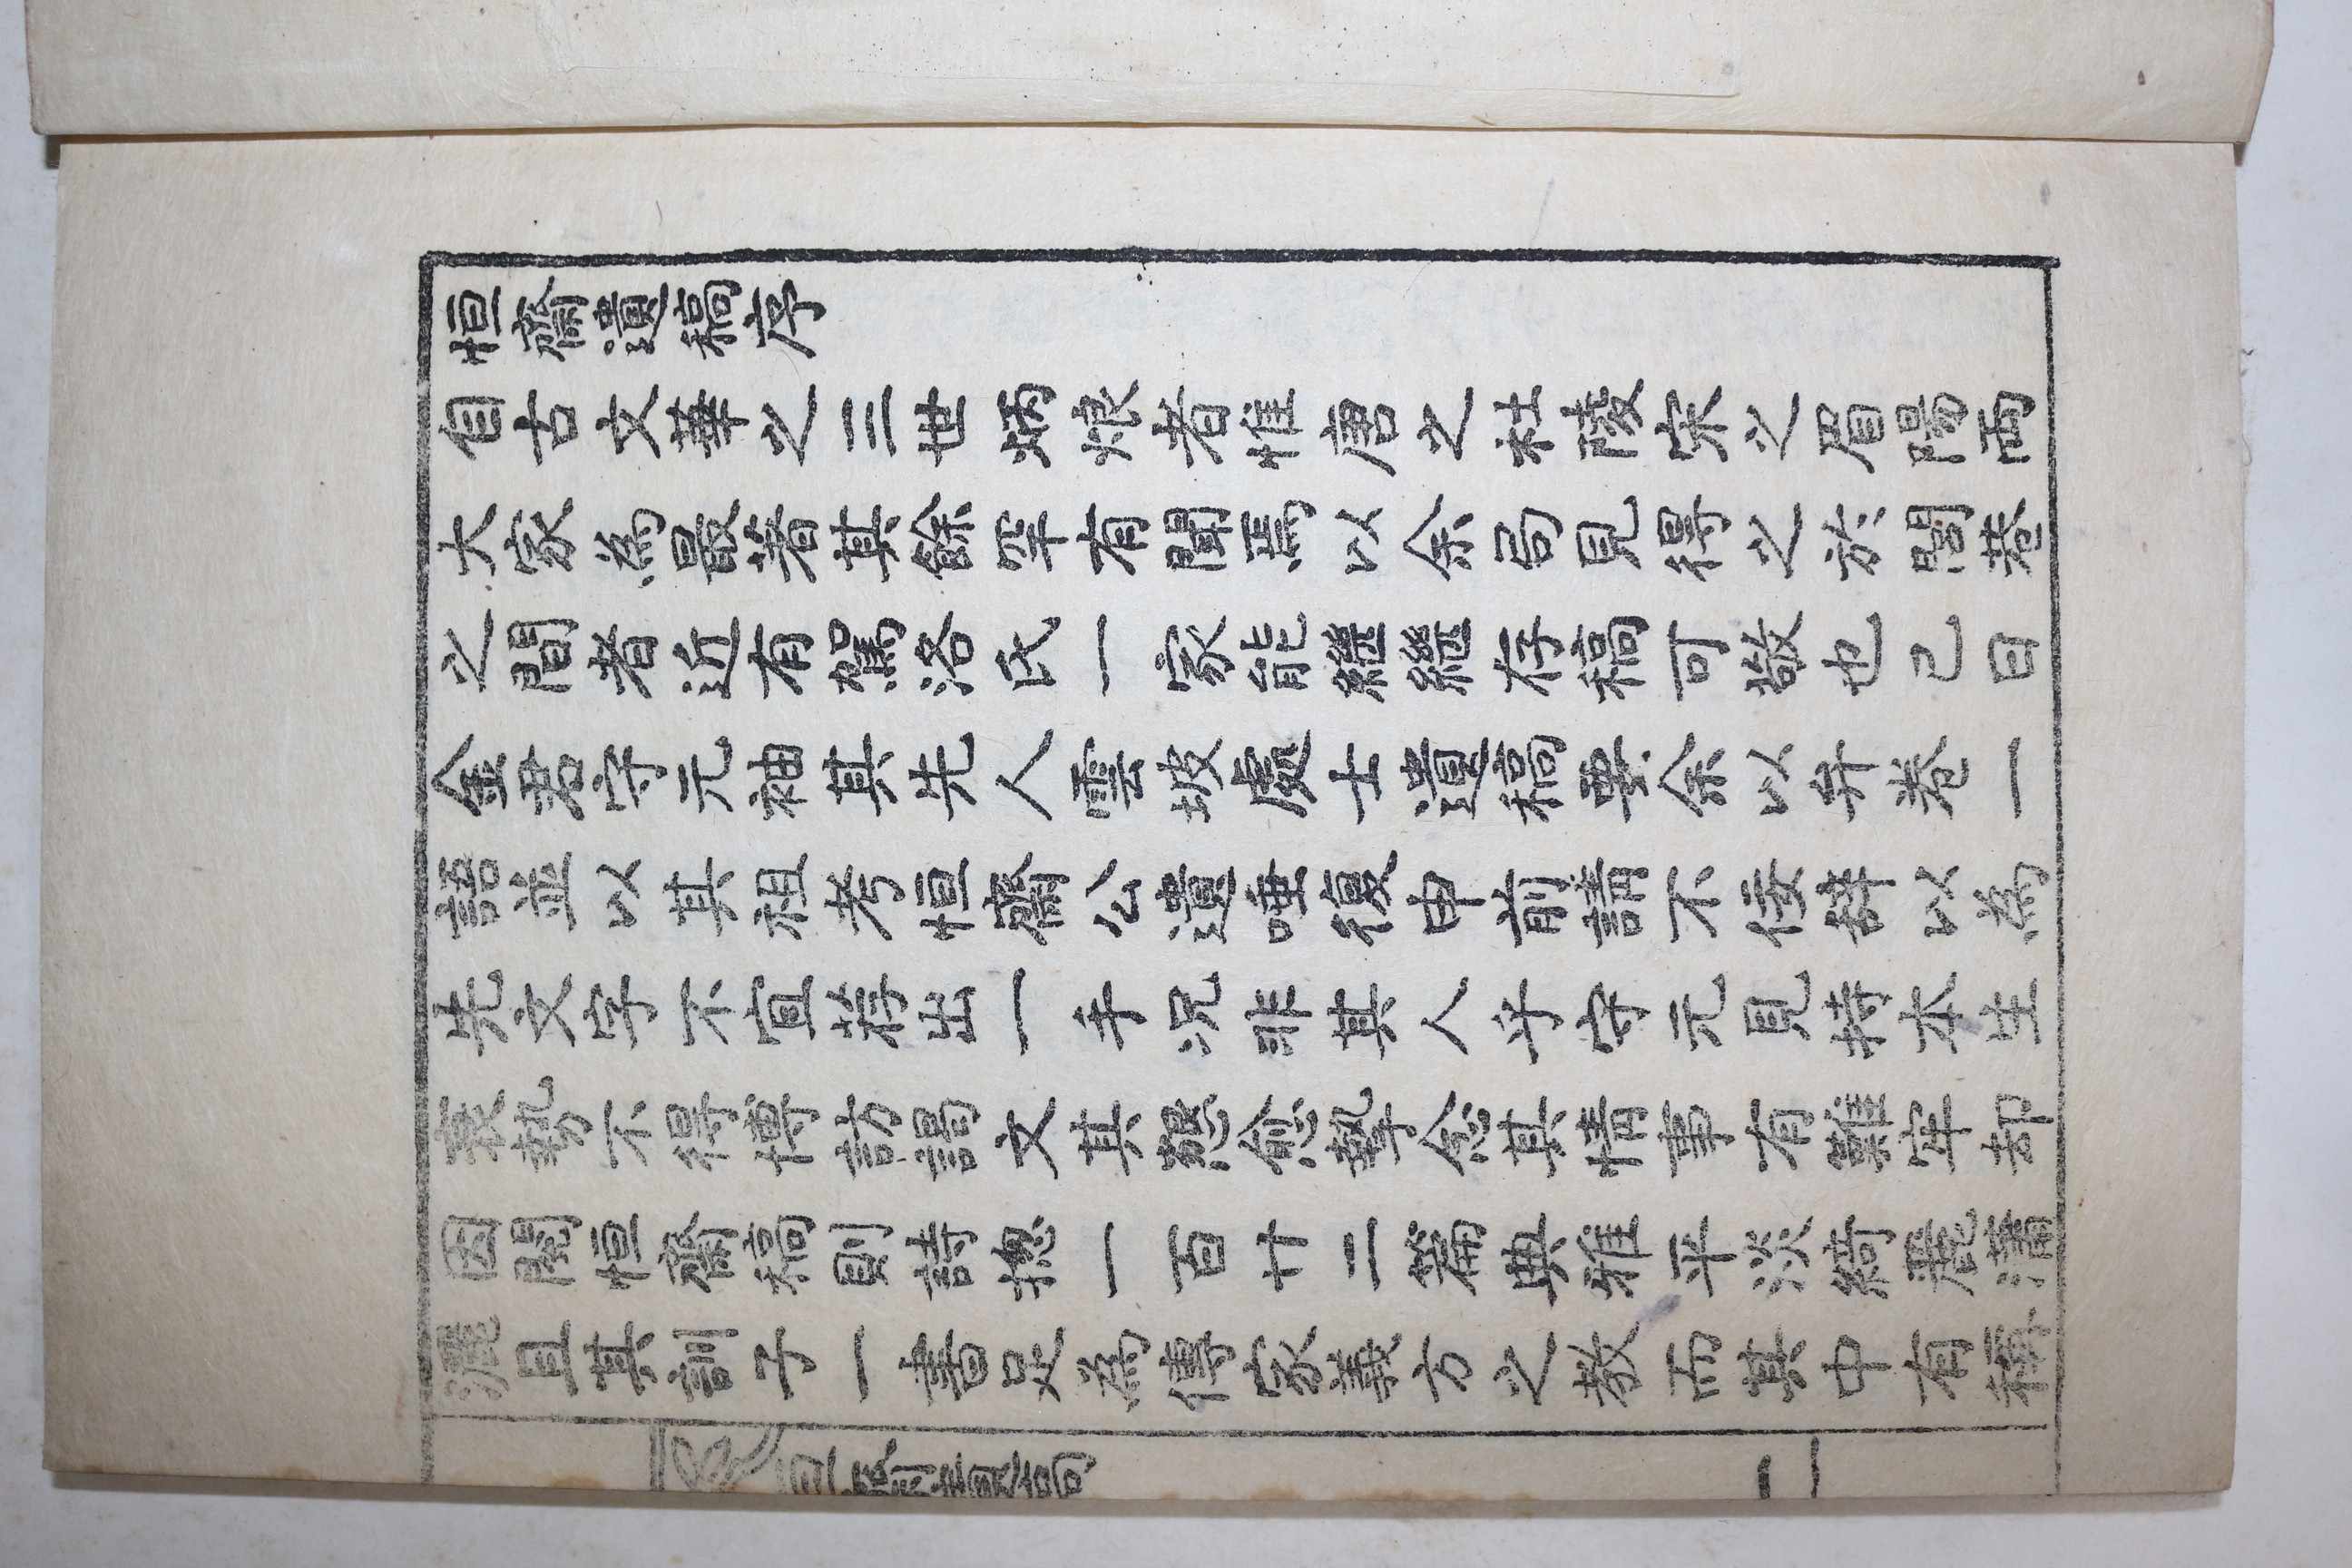 恒齋遺稿序
自古文華之三世炳烺者惟唐之杜陵宋之眉陽兩
大家為最著其餘罕有聞焉以余局見得之於閭巷
之間者近有駕洛氏一家能繼繼存稿可敬也已日
金君守元袖其先人雲坡處士遺稿要余以弁卷一
語並以其祖考恒齋公遺唾復申前請不佞辭以為
先文字不宜荐出一手况非其人乎守元見持本生
衰勢不得博訪謁文其懇愈摯念其情事有難牢却
因閱恒齋稿則詩揔一百廿二篇典雅平淡綺麗瀟
灑且其訓子一書足為傳家義方之教而其中有稱
恒齋遺稿